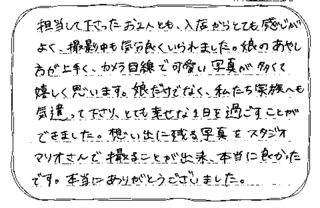 担当して下さったお2人とも、入店からとても感じが
よく、撮影中も気分良くいられました。娘のあやし
方が上手く、カメラ目線で可愛い写真が多くて
嬉しく思います。娘だけでなく、私たち家族へも
気遣って下さり、とても幸せな1日を過ごすことが
できました。想い出に残る写真をスタジオ
マリオさんで撮ることが出来、本当に良かった
です。本当にありがとうございました。